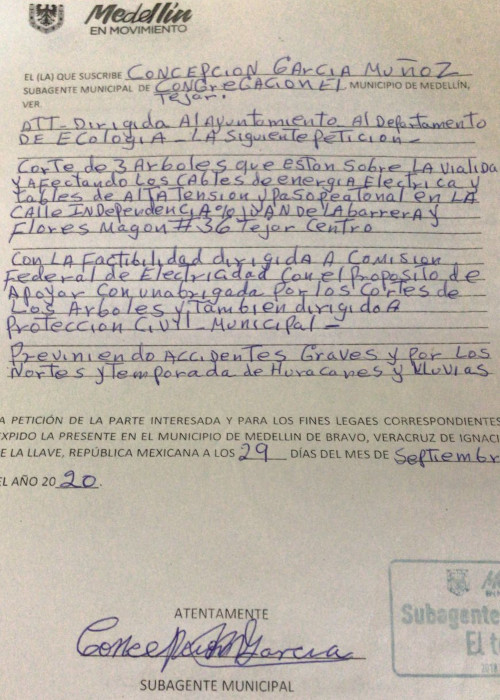 Medellín
EN MOVIMIENTO
EL (LA) QUE SUSCRIBE CONCEPCION GARCIA MUÑOZ
SUBAGENTE MUNICIPAL DE CONGREGACION EL MUNICIPIO DE MEDELLIN,
VER. Tejar.
ATT- Dirigida Al Ayuntamiento Al Departamento
DE Ecologia - LA Siguiente Peticion -
Corte de 3 Arboles que estan Sobre LA Vialida
y Afectando Los Cables de energia Electrica y
Cables de ALTA Tension y Paso peatonal en LA
Calle Independencia % IVAN De LA barrera y
Flores Magon #36 Tejar Centro
Con LA Factibilidad dirigida A Comision
Federal de Electricidad Con el Proposito de
Apoyar Con una brigada Por los Cortes de
Los Arboles y tambien dirigido A
Proteccion Civil Municipal -
Previniendo Accidentes Graves y Por Los
Nortes y Temporada de Huracanes y LLuvias
A PETICIÓN DE LA PARTE INTERESADA Y PARA LOS FINES LEGAES CORRESPONDIENTES
EXPIDO LA PRESENTE EN EL MUNICIPIO DE MEDELLIN DE BRAVO, VERACRUZ DE IGNACI
E LA LLAVE, REPÚBLICA MEXICANA A LOS 29 DÍAS DEL MES DE Septiembr
EL AÑO 20 20.
ATENTAMENTE
Concepcion Garcia
SUBAGENTE MUNICIPAL
Subagente
El t